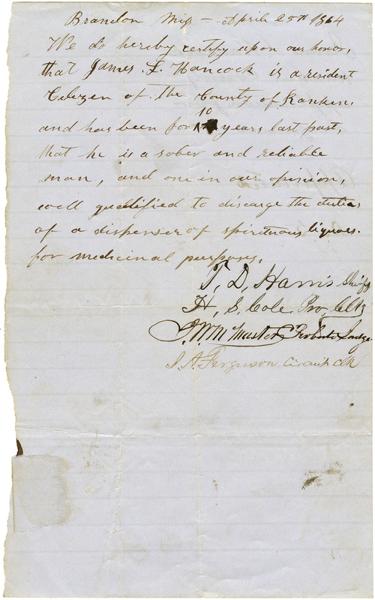 Brandon Miss – April 25th 1864
We do hereby certify upon our honor,
that James L. Hancock is a resident
Citizen of the County of Rankin,
and has been for 10 years last past,
that he is a sober and reliable
man, and one in our opinion,
well qualified to discarge the duties
of a dispenser of spirituous liquors
for medicinal purposes.
T. D. Harris Shiff
H. S. Cole Pro. Clk
Masters Probate Judge
J. A. Ferguson Circuit Clk